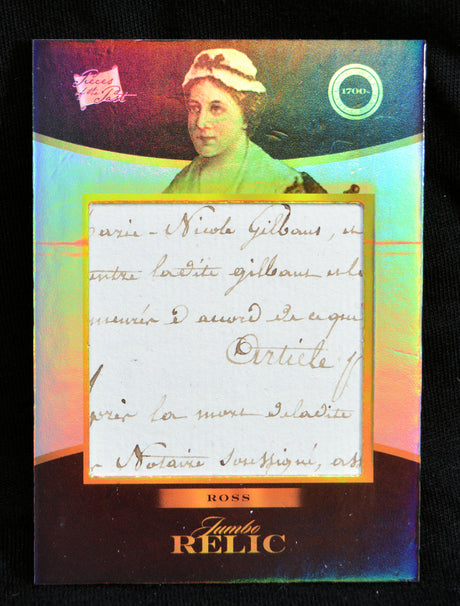 Pieces
of the
Past
1700s
Marie - Nicole Gilbaus, et
entre ladite gilbaus et le
meurés d'accord de ce qui
Article
après la mort de ladite
Notaire soussigné, ass
ROSS
Jumbo
RELIC